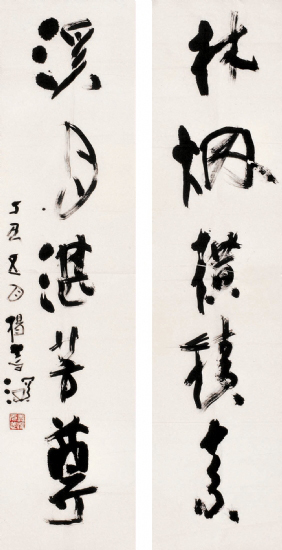 林烟横积素
溪月湛芳尊
丁丑 杨善深